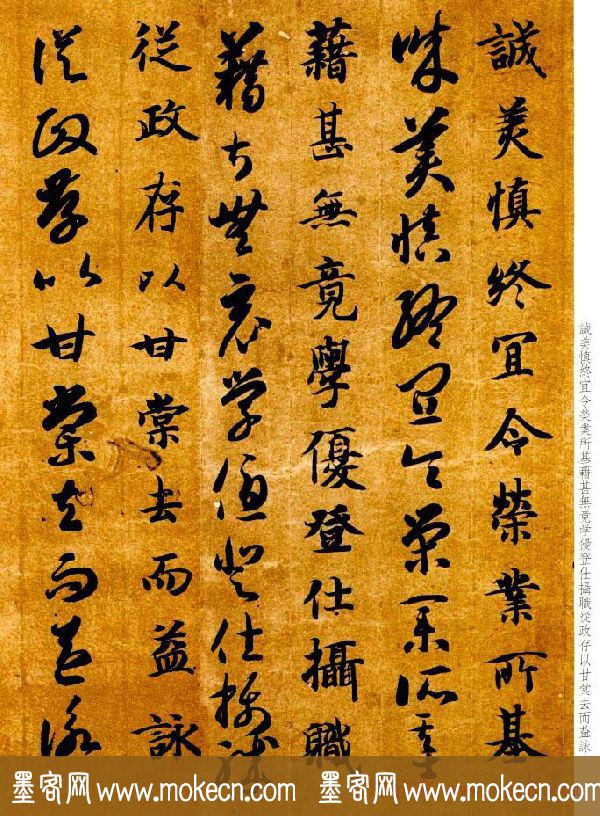 誠美慎終宜令榮業所基
誠美慎終宜令榮業所基
藉甚無竟學優登仕攝職
藉甚無竟學優登仕攝職
從政存以甘棠去而益詠
從政存以甘棠去而益詠
誠美慎終宜令榮業所基藉甚無竟学優登仕攝職從政存以甘棠去而益詠
墨客网 www.mokecn.com 墨客网 www.mokecn.com